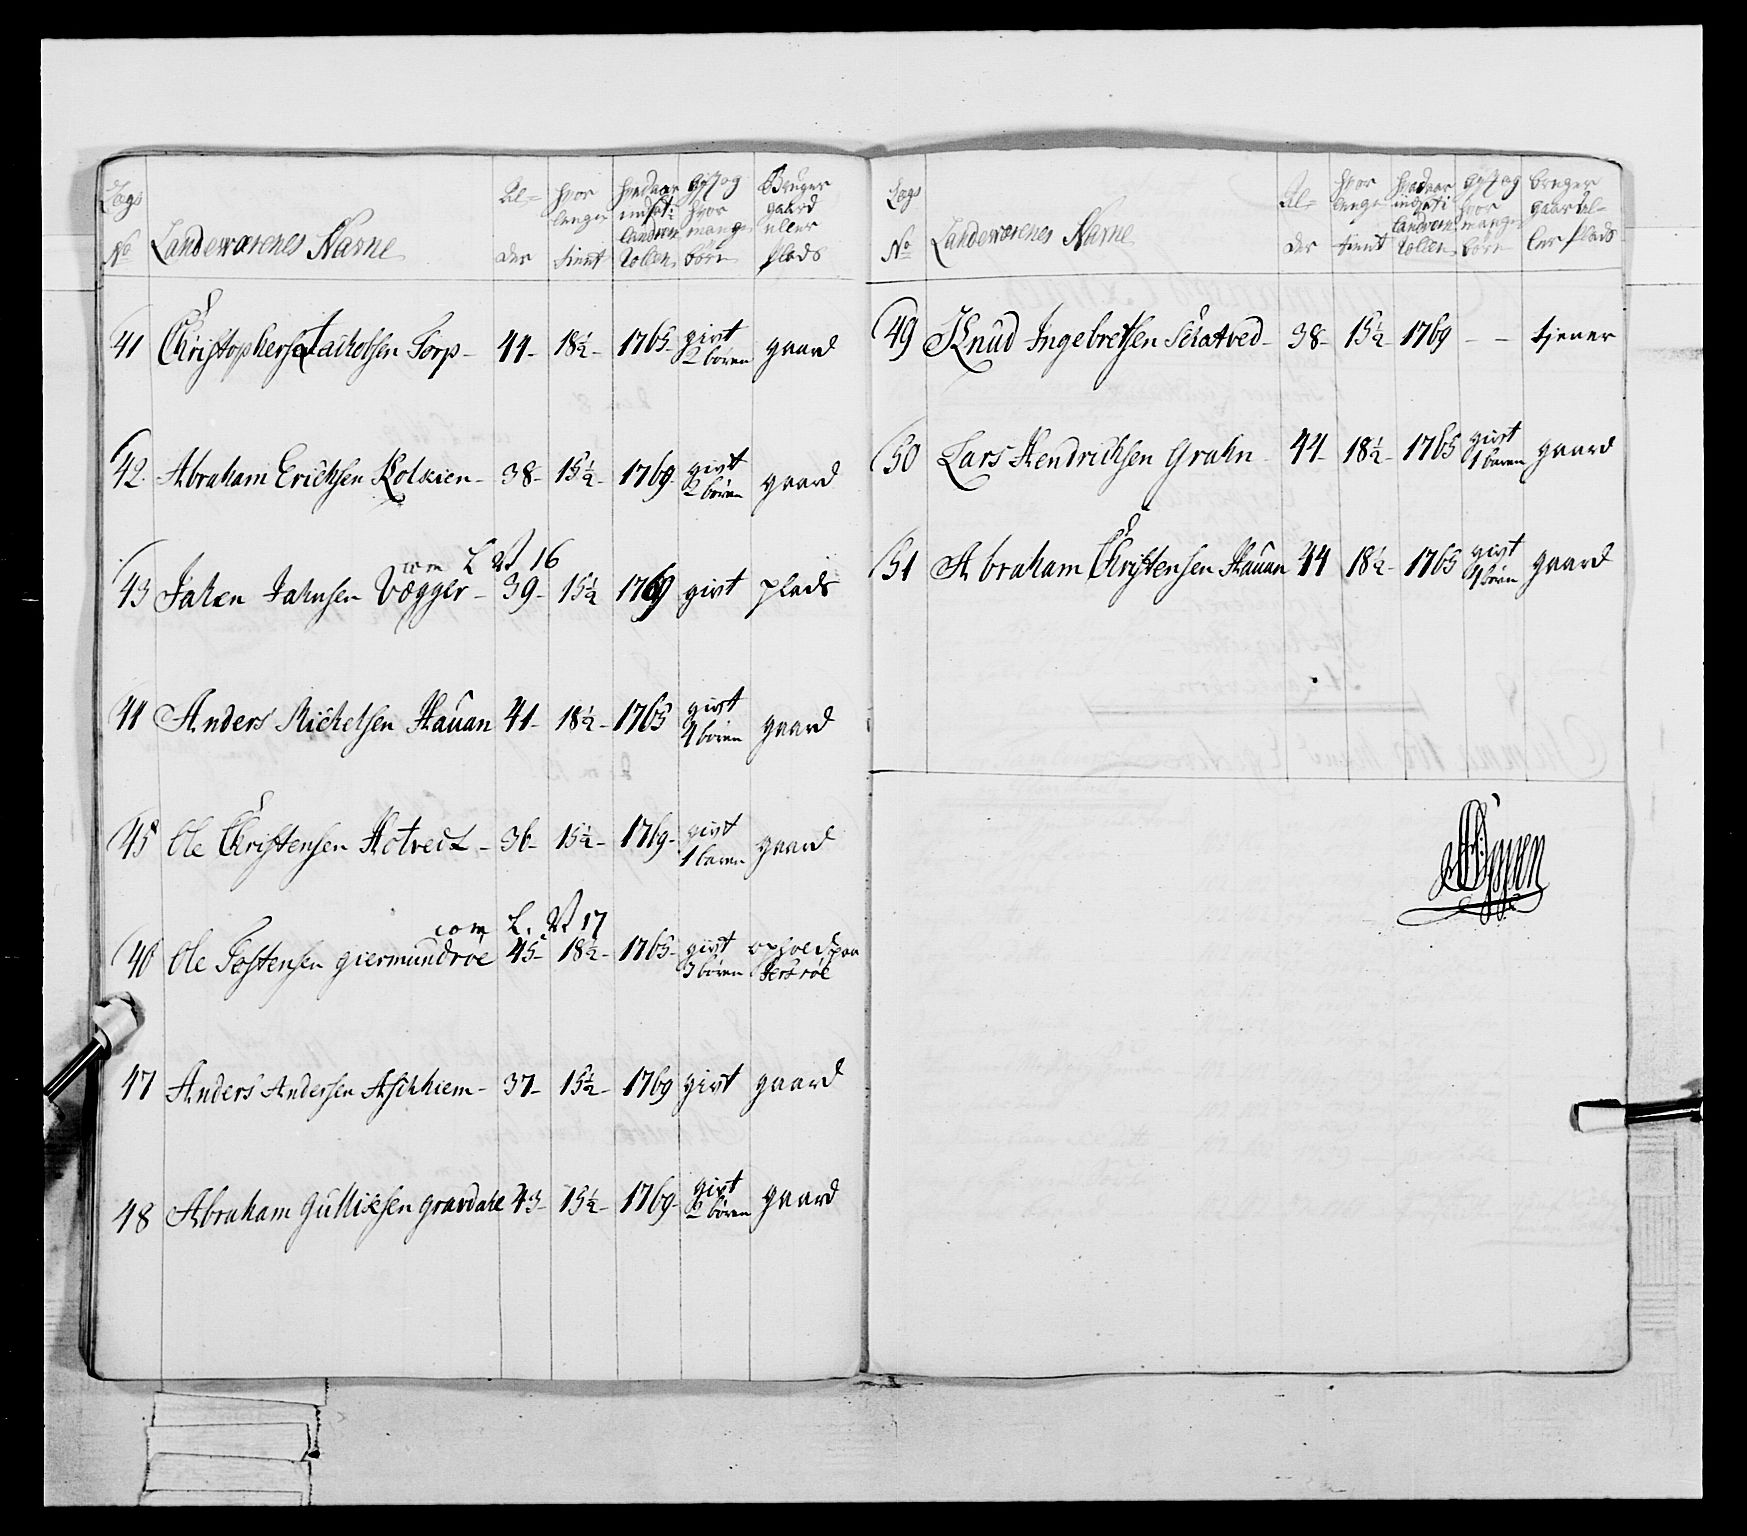 Lægs No Landeværenes Navne Al= der hvor lenge tient hvadaar indsat i landvern Rollen gift og hvor mange börn Bruger gaard eller plads
41 Christophersen Jacholsen Torp - 44 - 18½ - 1765 - givt 2 boren gaard
42. Abraham Erichsen Kolskien - 38 - 15½ - 1769 - givt 2 bören gaard
com L N 16
43 Jahen Jahnsen Vægger - 39 - 15½ 1769 givt plads
44 Anders Michelsen Hauan 41 - 18½ - 1765 givt 4 bören gaard
45 Ole Christensen Hotvedt - 36 - 15½ - 1769 - givt 1 baren gaard
com L. N 17
46 Ole Tostensen giermundröe 45 - 18½ - 1765 - givt 3 bören ophold paa
47 Anders Andersen Aschhiem - 37 - 15½ - 1769 givt gaard
48 Abraham Gulliksen gravdahl 43 - 15½ - 1769 - givt 2 bören gaard
Lægs No Landeværenes Navne Al= der hvor lenge tient hvadaar indsat i landvern Rollen gift og hvor mange börn bruger gaard el= ler plads
49 Knud Ingebretsen Schatved - 38 - 15½ - 1769 - - tjener
50 Lars Hendrichsen Grahn - 44 - 18½ - 1765 givt 1 baren gaard
51 Abraham Christensen Hauan 44 18½ - 1765 givt 4 börn gaard